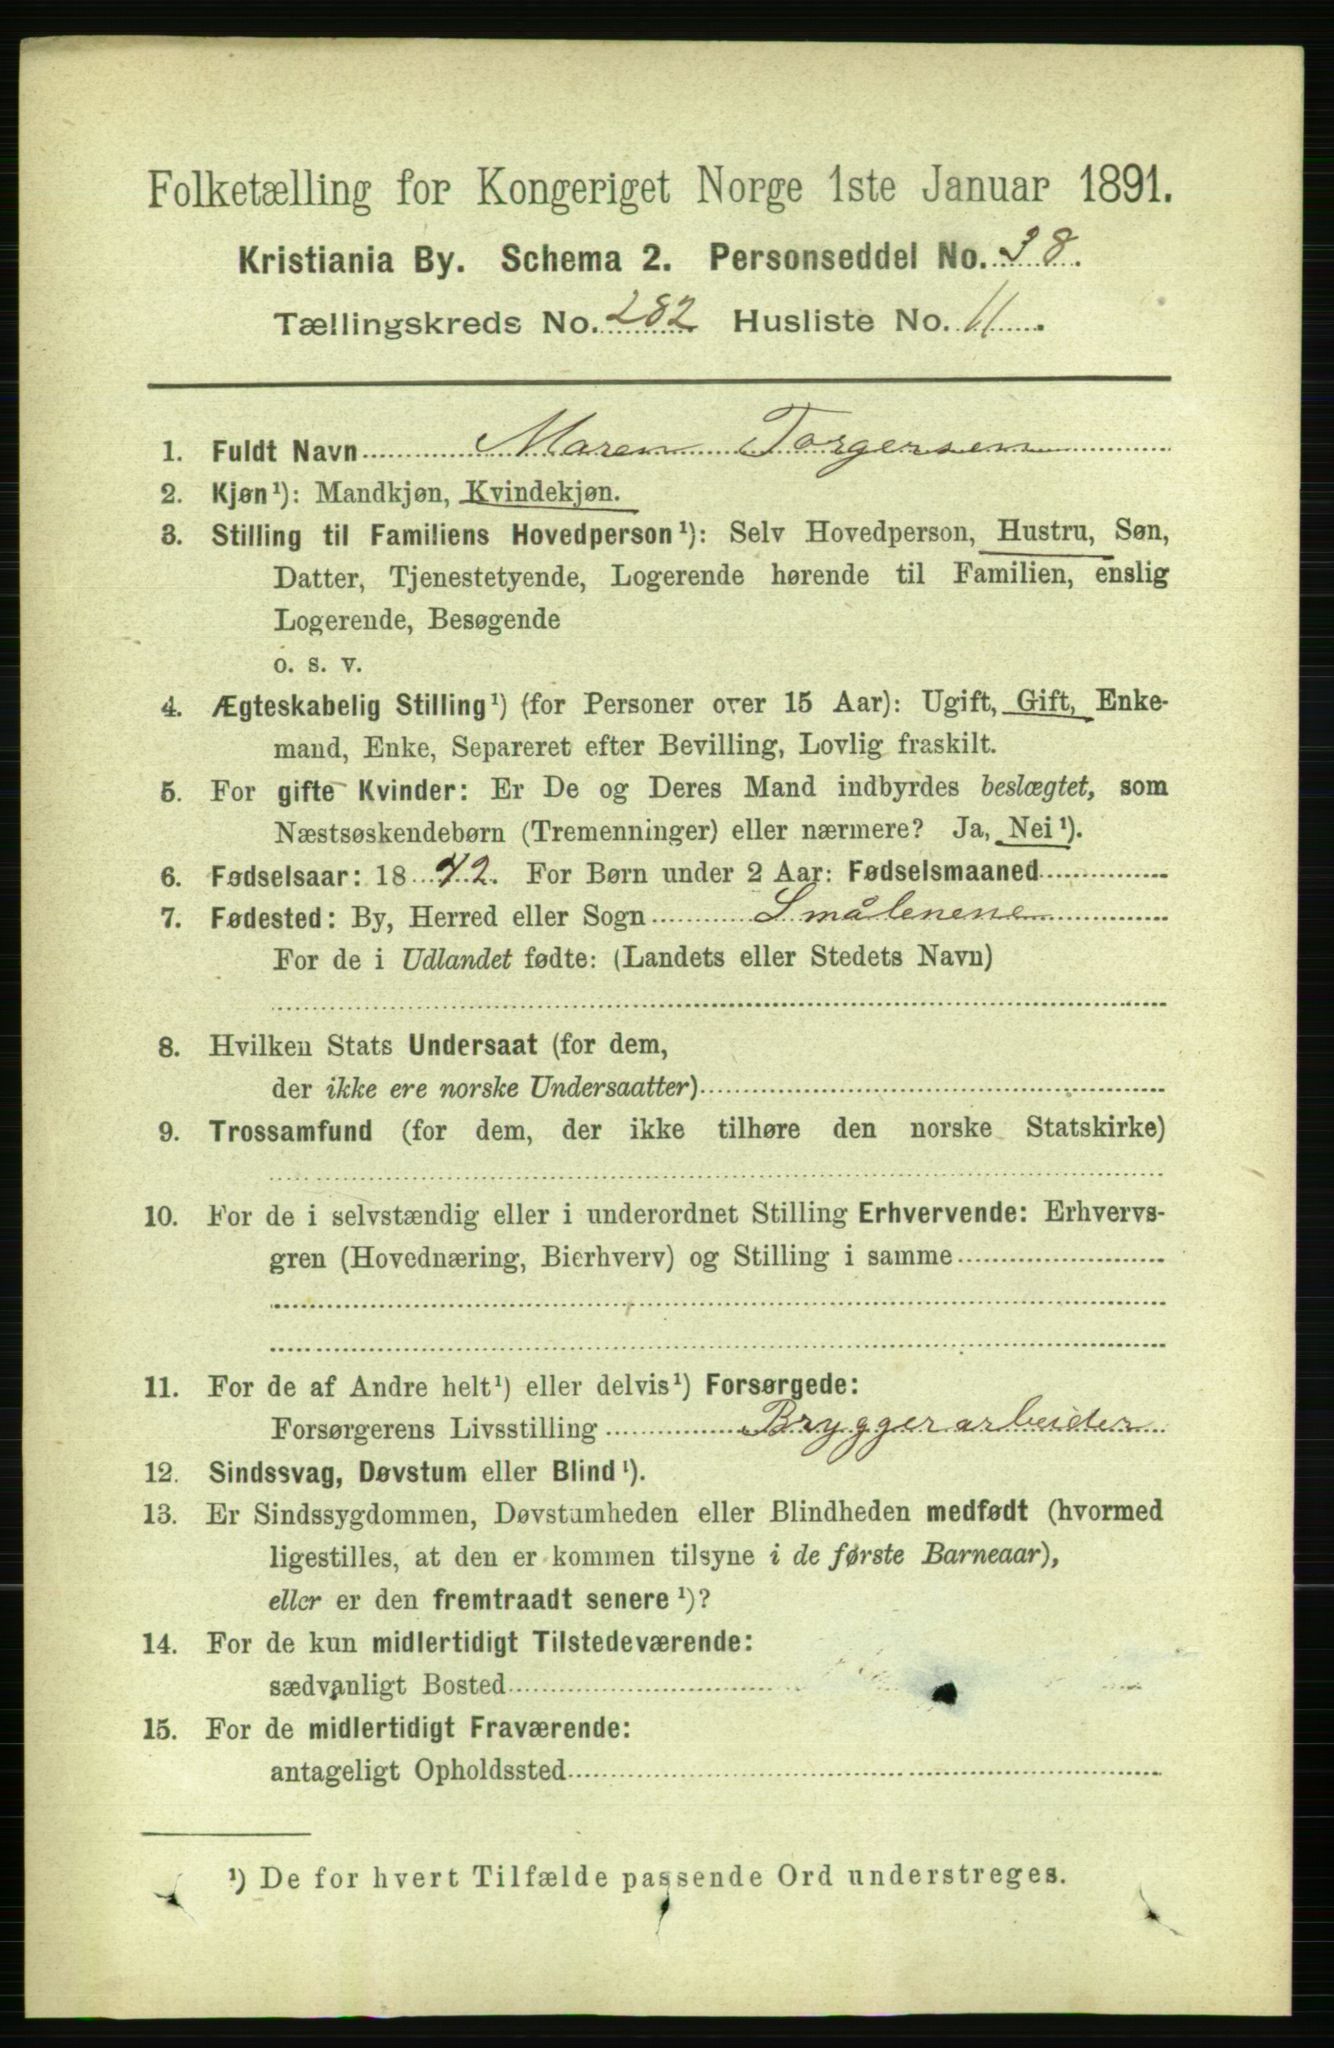 Folketælling for Kongeriget Norge 1ste Januar 1891.
Kristiania By. Schema 2. Personseddel No. 38.
Tællingskreds No. 282 Husliste No. 11.
1. Fuldt Navn Maren Torgersen
2. Kjøn¹): Mandkjøn, Kvindekjøn.
3. Stilling til Familiens Hovedperson¹): Selv Hovedperson, Hustru, Søn,
Datter, Tjenestetyende, Logerende hørende til Familien, enslig
Logerende, Besøgende
o. s. v.
4. Ægteskabelig Stilling¹) (for Personer over 15 Aar): Ugift, Gift, Enke-
mand, Enke, Separeret efter Bevilling, Lovlig fraskilt.
5. For gifte Kvinder: Er De og Deres Mand indbyrdes beslægtet, som
Næstsøskendebørn (Tremenninger) eller nærmere? Ja, Nei¹).
6. Fødselsaar: 1842. For Børn under 2 Aar: Fødselsmaaned
7. Fødested: By, Herred eller Sogn Smålenene
For de i Udlandet fødte: (Landets eller Stedets Navn)
8. Hvilken Stats Undersaat (for dem,
der ikke ere norske Undersaatter)
9. Trossamfund (for dem, der ikke tilhøre den norske Statskirke)
10. For de i selvstændig eller i underordnet Stilling Erhvervende: Erhvervs-
gren (Hovednæring, Bierhverv) og Stilling i samme
11. For de af Andre helt¹) eller delvis¹) Forsørgede:
Forsørgerens Livsstilling Bryggerarbeider
12. Sindssvag, Døvstum eller Blind¹).
13. Er Sindssygdommen, Døvstumheden eller Blindheden medfødt (hvormed
ligestilles, at den er kommen tilsyne i de første Barneaar),
eller er den fremtraadt senere¹)?
14. For de kun midlertidigt Tilstedeværende:
sædvanligt Bosted
15. For de midlertidigt Fraværende:
antageligt Opholdssted
¹) De for hvert Tilfælde passende Ord understreges.